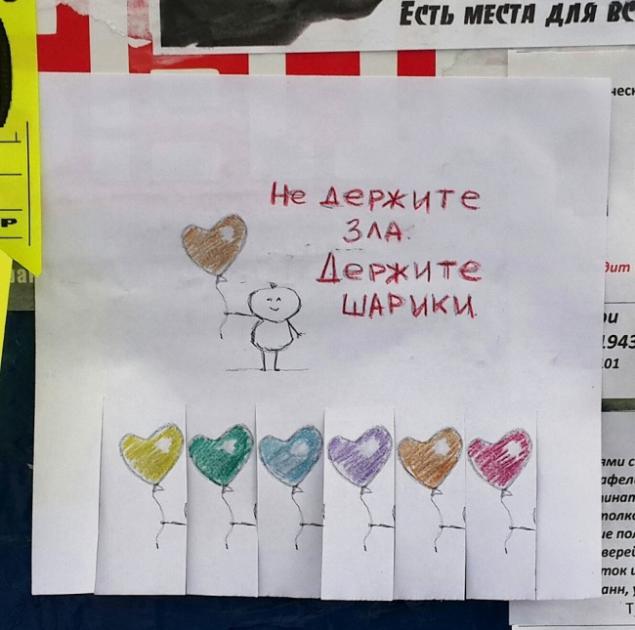 Есть места для вс
Не держите
зла.
Держите
шарики.
Р
дит
1943
.01
ями с
афел
инат
толко
верей
ток и
анн, у
Т